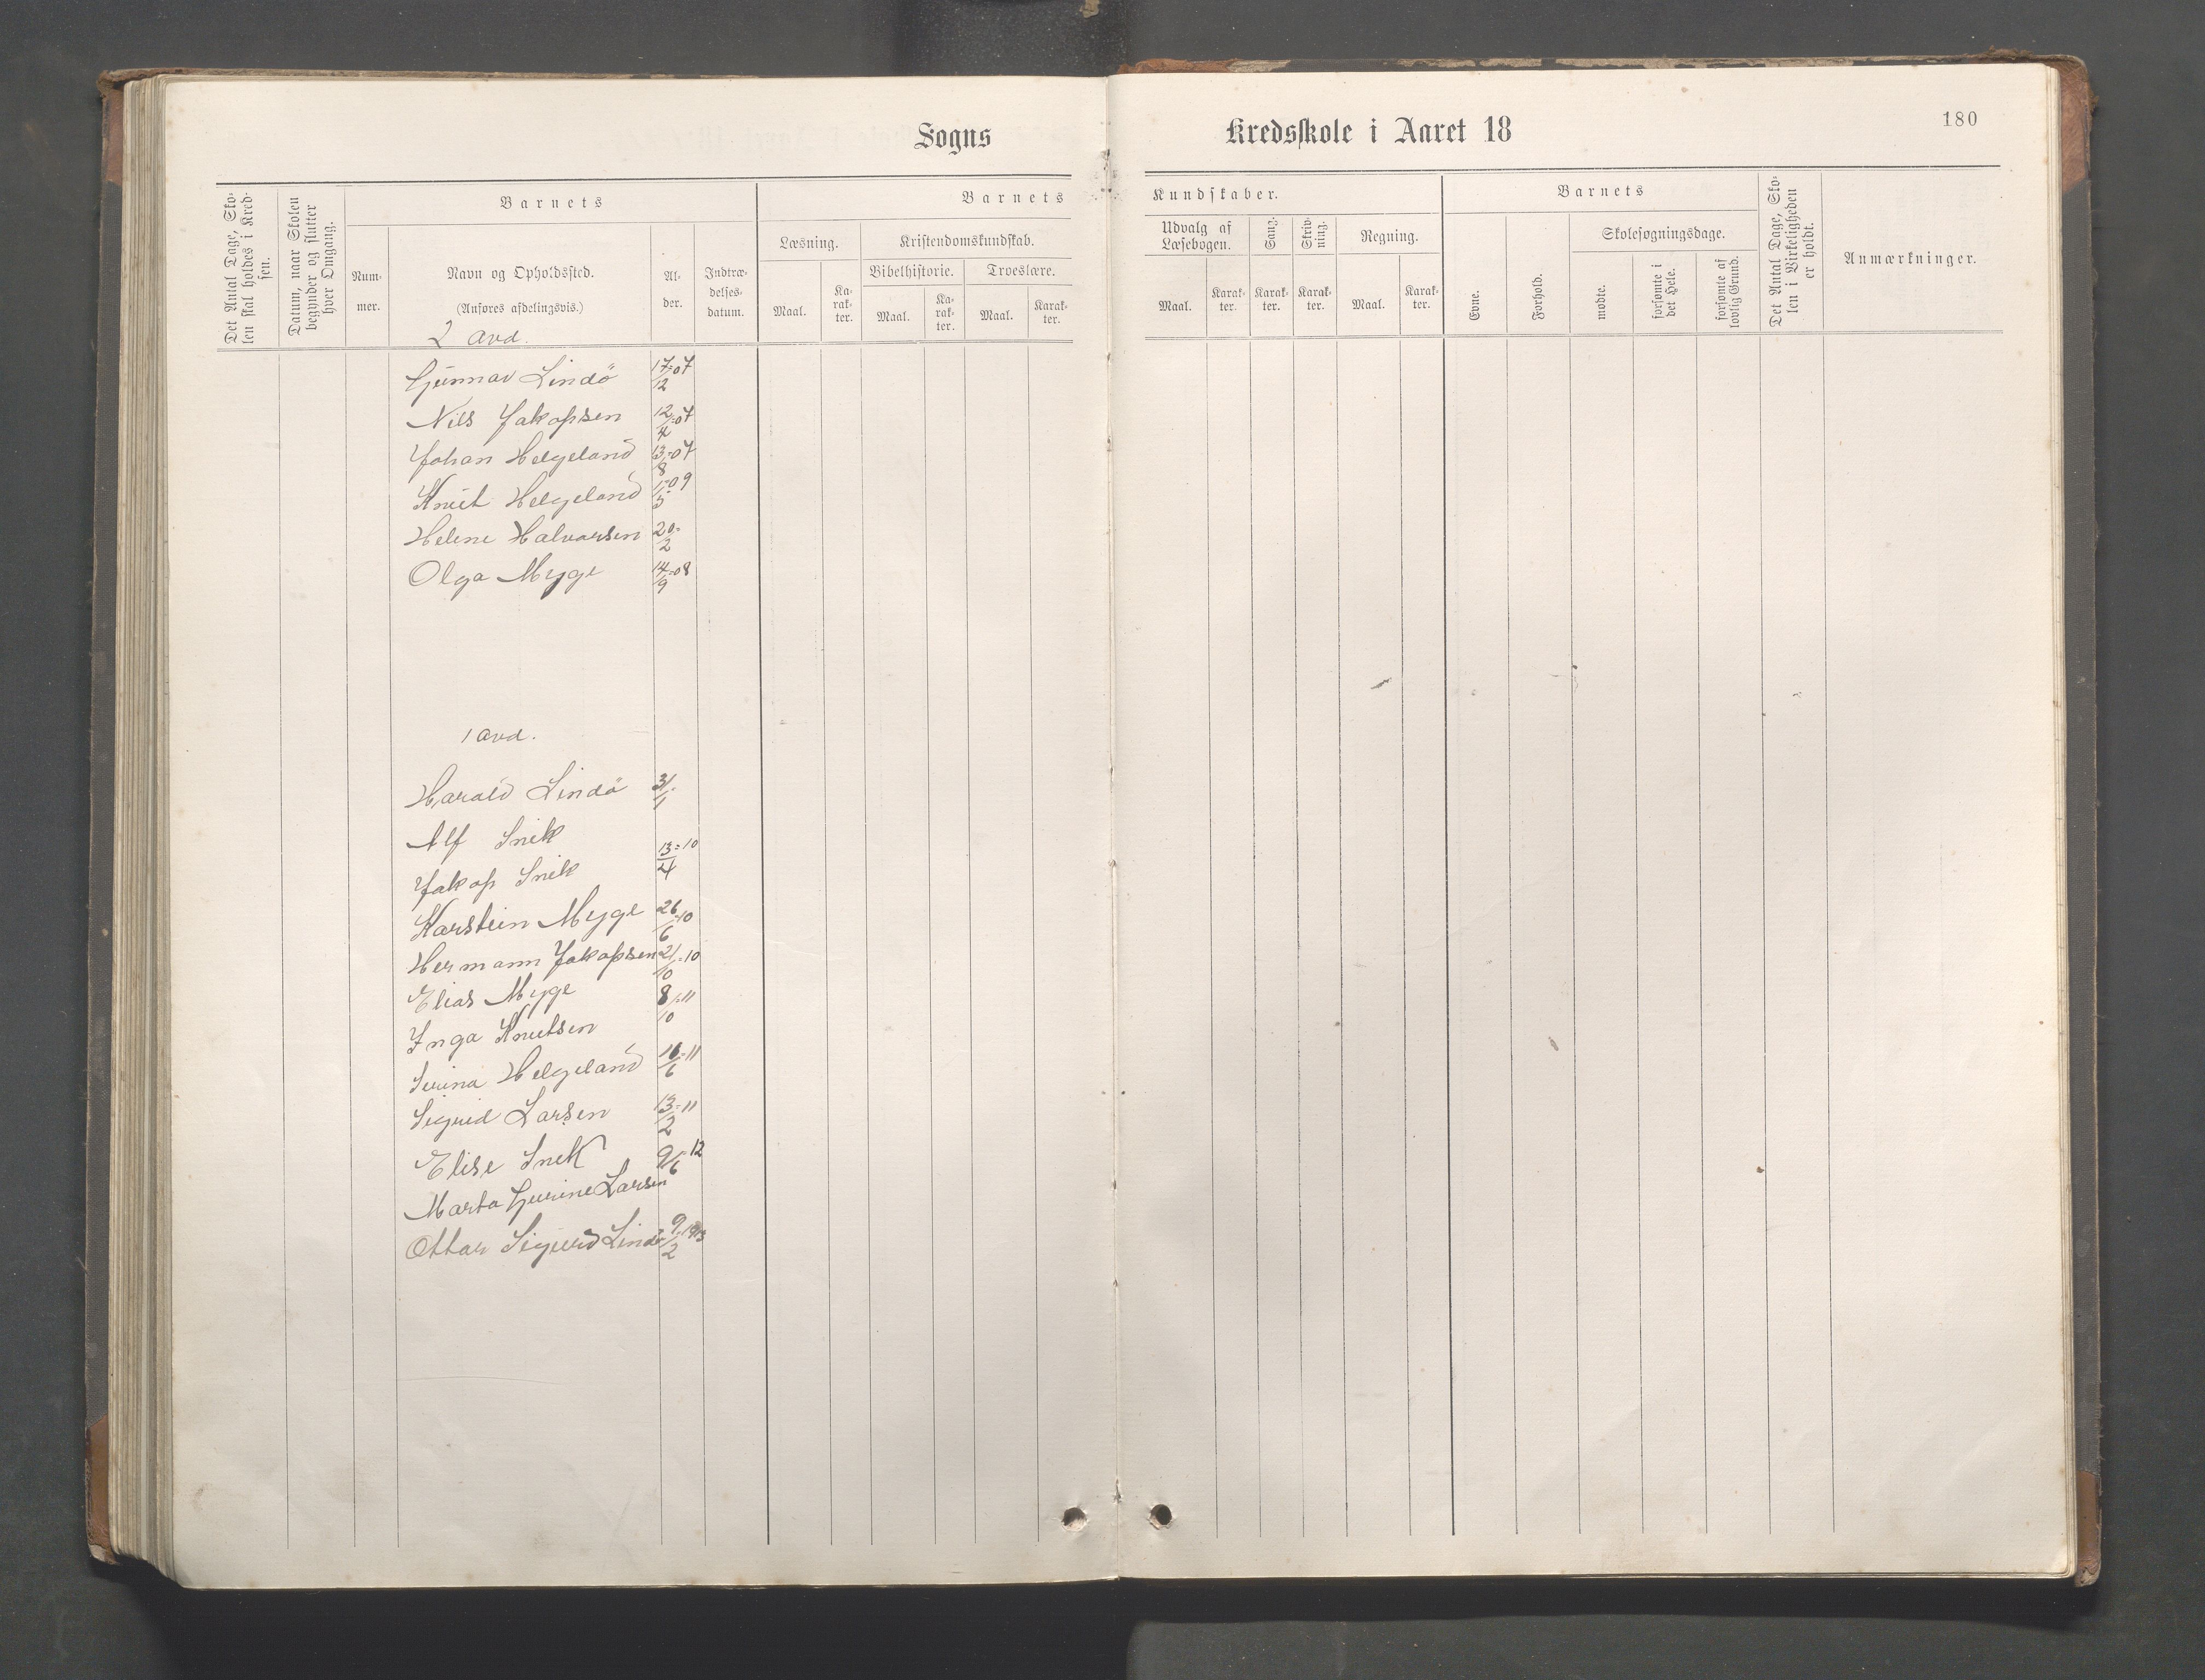 Sogns
Kredsskole i Aaret 18
180
Det Antal Dage, Sko-
len skal holdes i Kred-
sen.
Datum, naar Skolen
begynder og slutter
hver Omgang.
Barnets
Num-
mer.
Navn og Opholdssted.
(Anføres afdelingsvis.)
Al-
der.
Indtræ-
delses-
datum.
Barnets
Læsning.
Maal.
Ka-
rak-
ter.
Kristendomskundskab.
Bibelhistorie.
Maal.
Ka-
rak-
ter.
Troeslære.
Maal.
Karak-
ter.
Kundskaber.
Udvalg af
Læsebogen.
Maal.
Karak-
ter.
Sang.
Karak-
ter.
Skriv-
ning.
Karak-
ter.
Regning.
Maal.
Karak-
ter.
Barnets
Evne.
Forhold.
Skolesøgningsdage.
mødte.
forsømte i
det Hele.
forsømte af
lovlig Grund.
Det Antal Dage, Sko-
len i Virkeligheden
er holdt.
Anmærkninger.
2 avd.
Gunnar Lindö 17/12-07
Nils Jakopsen 12/4-07
Johan Helgeland 13/8-07
Knut Helgeland 1/5-09
Helene Halvorsen 20/2-
Olga Myge 14/9-08
1 avd.
Harald Lindö 31/1-
Alf Snik
Jakop Snik 13/4-10
Karstein Myge 26/6-10
Hermann Jakopsen 21/10-10
Elias Myge 8/10-11
Inga Knutsen
Serina Helgeland 16/6-11
Sigrid Larsen 13/2-11
Elise Snik 9/6-12
Marta Gurine Larsen
Ottar Sigurd Lindö 9/2-1913